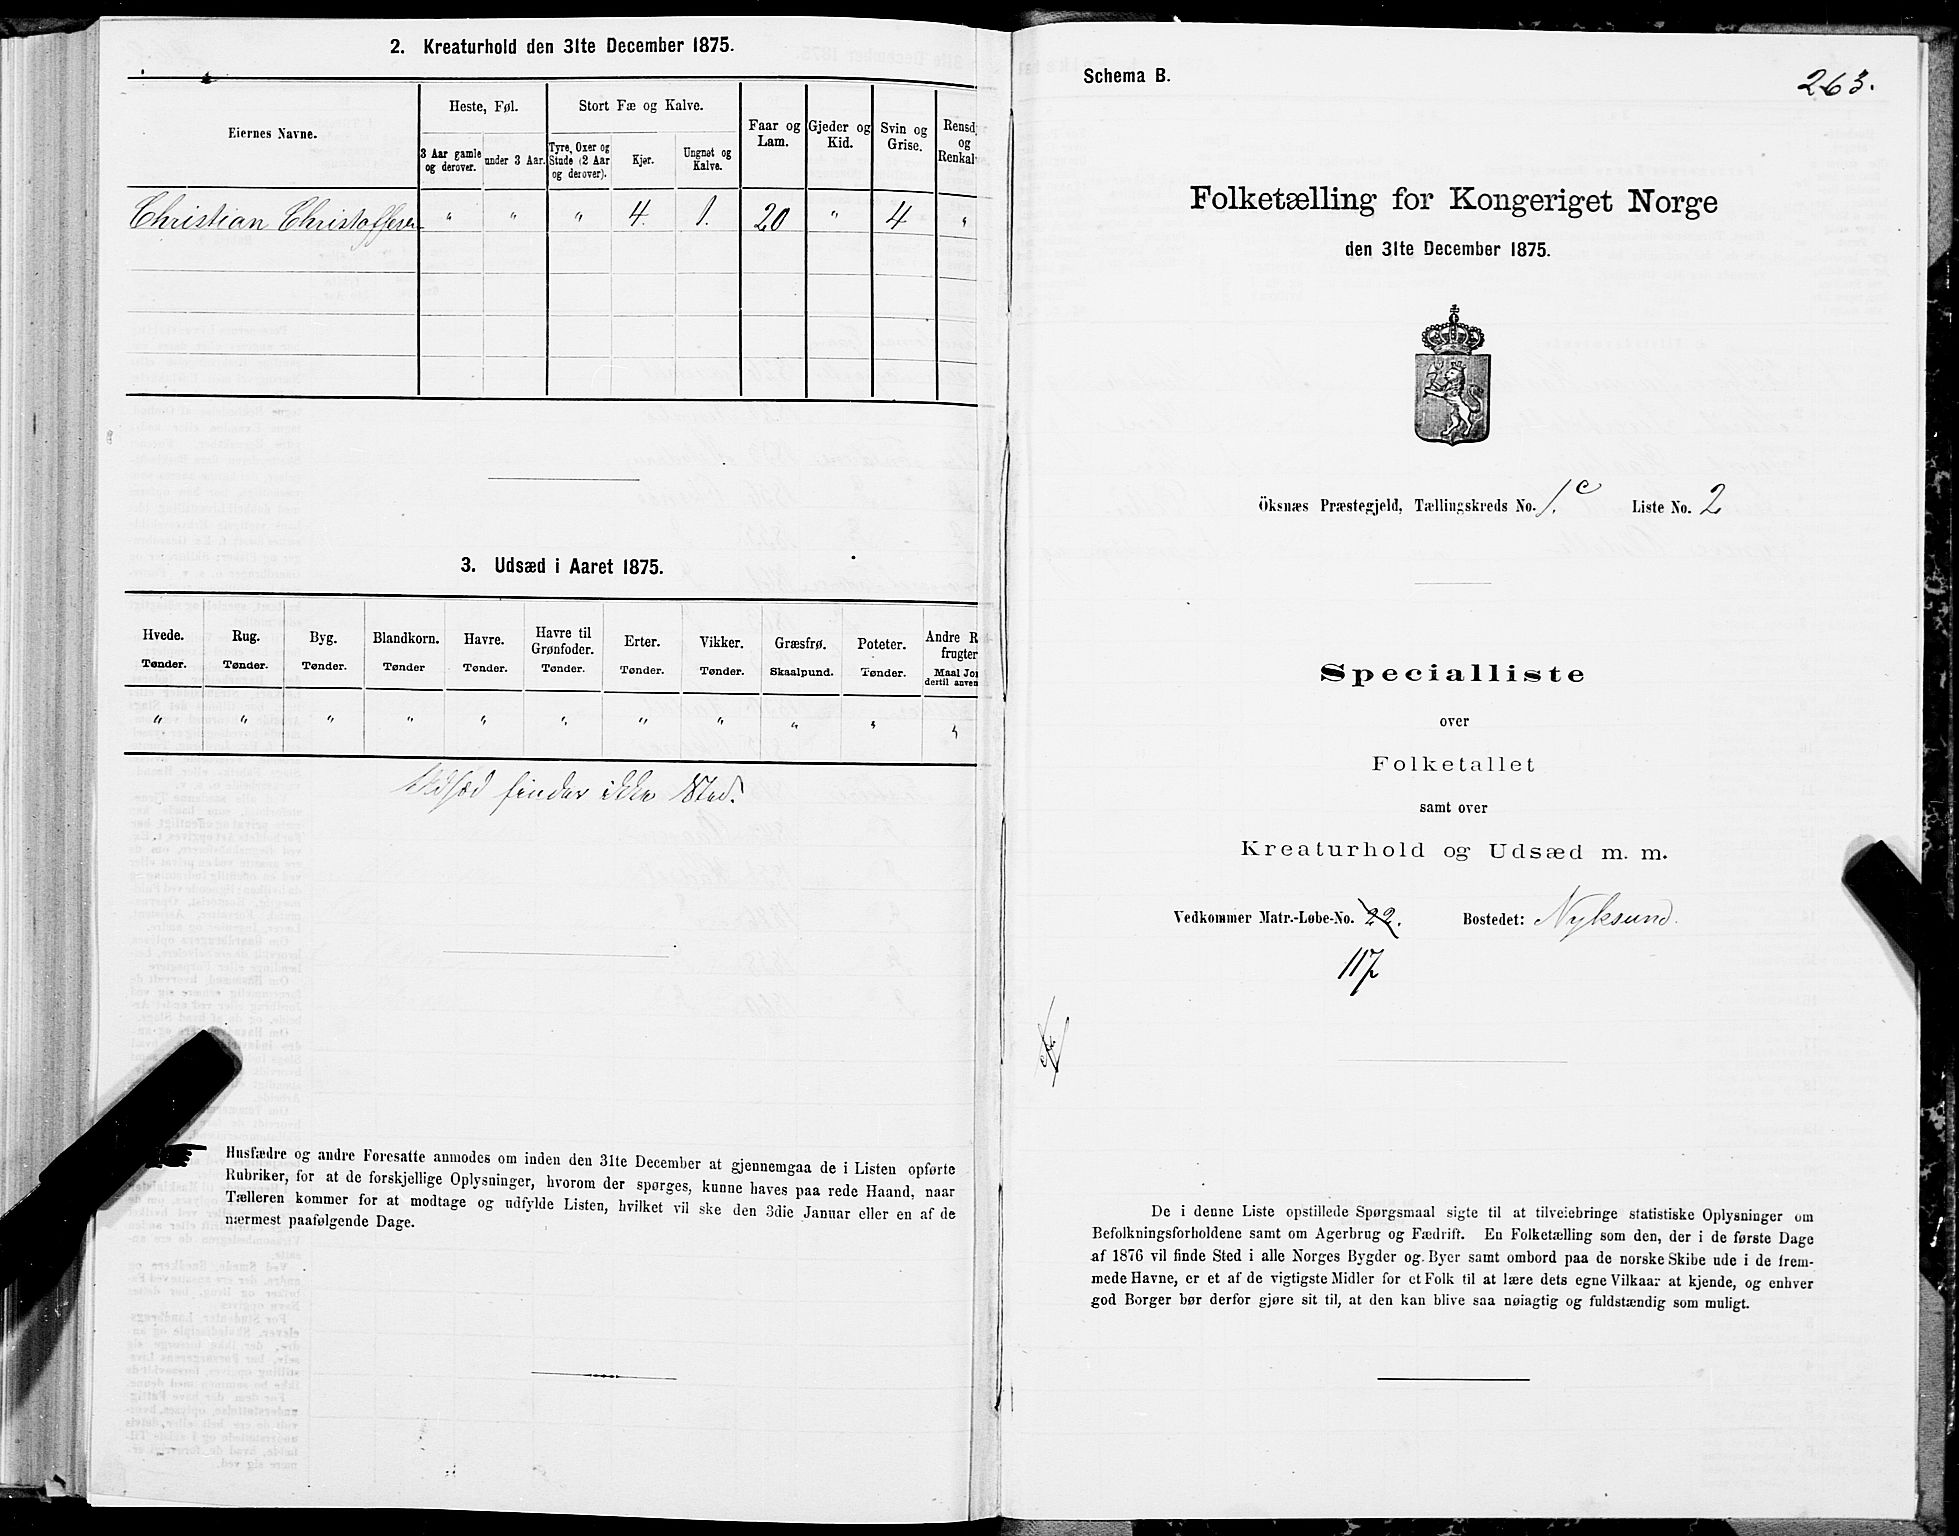 2. Kreaturhold den 31te December 1875.
Eiernes Navne.
Heste, Føl.
Stort Fæ og Kalve.
Faar og Lam.
Gjeder og Kid.
Svin og Grise.
Rensd
og
Renkal
3 Aar gamle og derover.
under 3 Aar.
Tyre, Oxer og Stude (2 Aar og derover).
Kjør.
Ungnøt og Kalve.
Christian Christoffersen " " " 4. 1. 20 " 4 "
3. Udsæd i Aaret 1875.
Hvede. Rug. Byg. Blandkorn. Havre. Havre til Grønfoder. Erter. Vikker. Græsfrø. Poteter. Andre R
frugter
Tønder. Tønder. Tønder. Tønder Tønder. Tønder. Tønder. Tønder. Skaalpund. Tønder. Maal Jor
dertil anven
" " " " " " " " " " "
Udsæd finder ikke Sted.
Husfædre og andre Foresatte anmodes om inden den 31te December at gjennemgaa de i Listen opførte
Rubriker, for at de forskjellige Oplysninger, hvorom der spørges, kunne haves paa rede Haand, naar
Tælleren kommer for at modtage og udfylde Listen, hvilket vil ske den 3die Januar eller en af de
nærmest paafølgende Dage.
Schema B.
263.
Folketælling for Kongeriget Norge
den 31te December 1875.
Öksnæs Præstegjeld, Tællingskreds No. 1.c Liste No. 2
Specialliste
over
Folketallet
samt over
Kreaturhold og Udsæd m. m.
Vedkommer Matr.-Løbe-No. 22. Bostedet: Nyksund.
117
De i denne Liste opstillede Spørgsmaal sigte til at tilveiebringe statistiske Oplysninger om
Befolkningsforholdene samt om Agerbrug og Fædrift. En Folketælling som den, der i de første Dage
af 1876 vil finde Sted i alle Norges Bygder og Byer samt ombord paa de norske Skibe ude i de frem-
mede Havne, er et af de vigtigste Midler for et Folk til at lære dets egne Vilkaar at kjende, og enhver
god Borger bør derfor gjøre sit til, at den kan blive saa nøiagtig og fuldstændig som muligt.